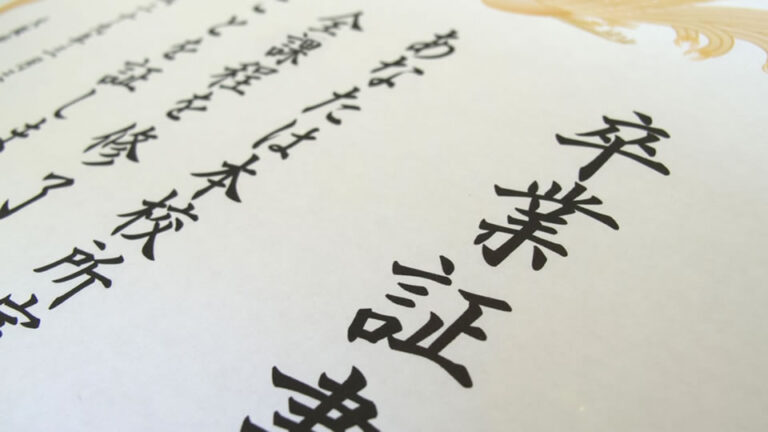 卒業証書
あなたは本校所定
全課程を修了
ことを証しま